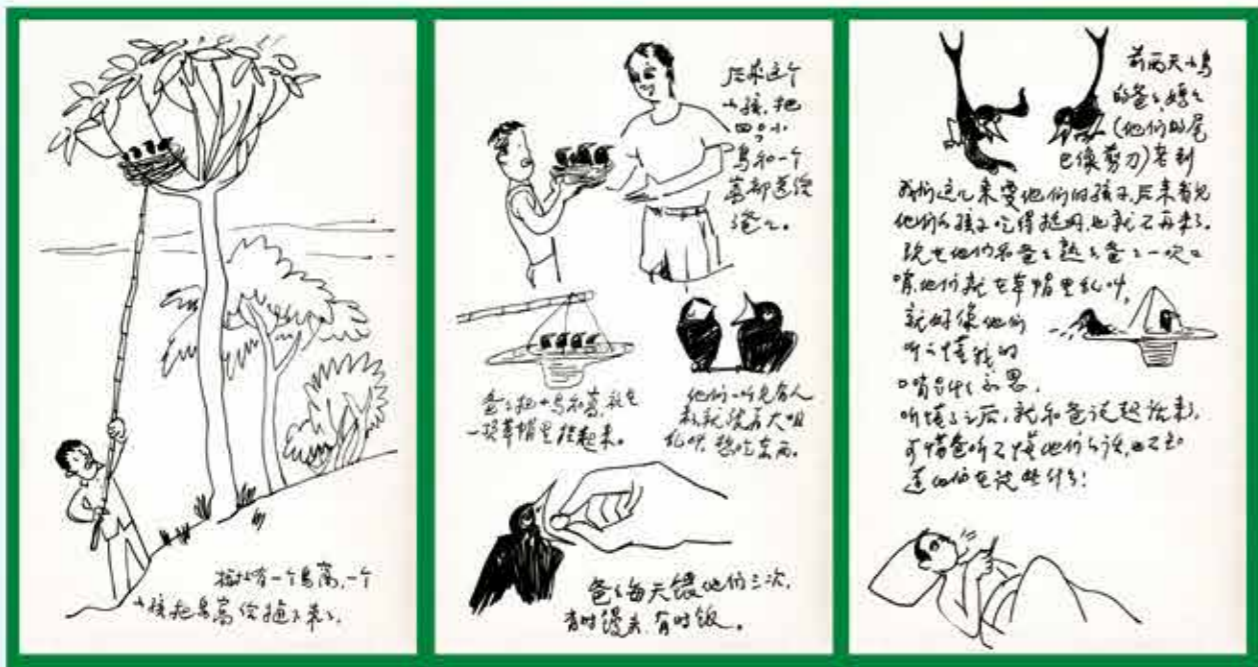 树上有一个鸟窝,一个
小孩把鸟窝给捅下来了。
后来这个
小孩,把
四只小
鸟和一个
窝都送给
爸爸。
爸爸把小鸟和窝,放在
一顶草帽里挂起来。
他们一听见有人
来就张着大咀
乱叫,想吃东西。
爸爸每天喂他们三次,
有时馒头,有时饭。
前两天小鸟
的爸爸妈妈
(他们的尾
巴像剪刀)老到
我们这儿来要他们的孩子,后来看见
他们的孩子吃得挺好,也就不再来了。
现在他们和爸爸熟了爸爸一吹口
哨,他们就在草帽里乱叫,
就好像他们
听不懂我的
口哨是什么意思,
听懂了之后,就和爸说起话来,
可惜爸听不懂他们的话,也不知
道他们在说些什么!